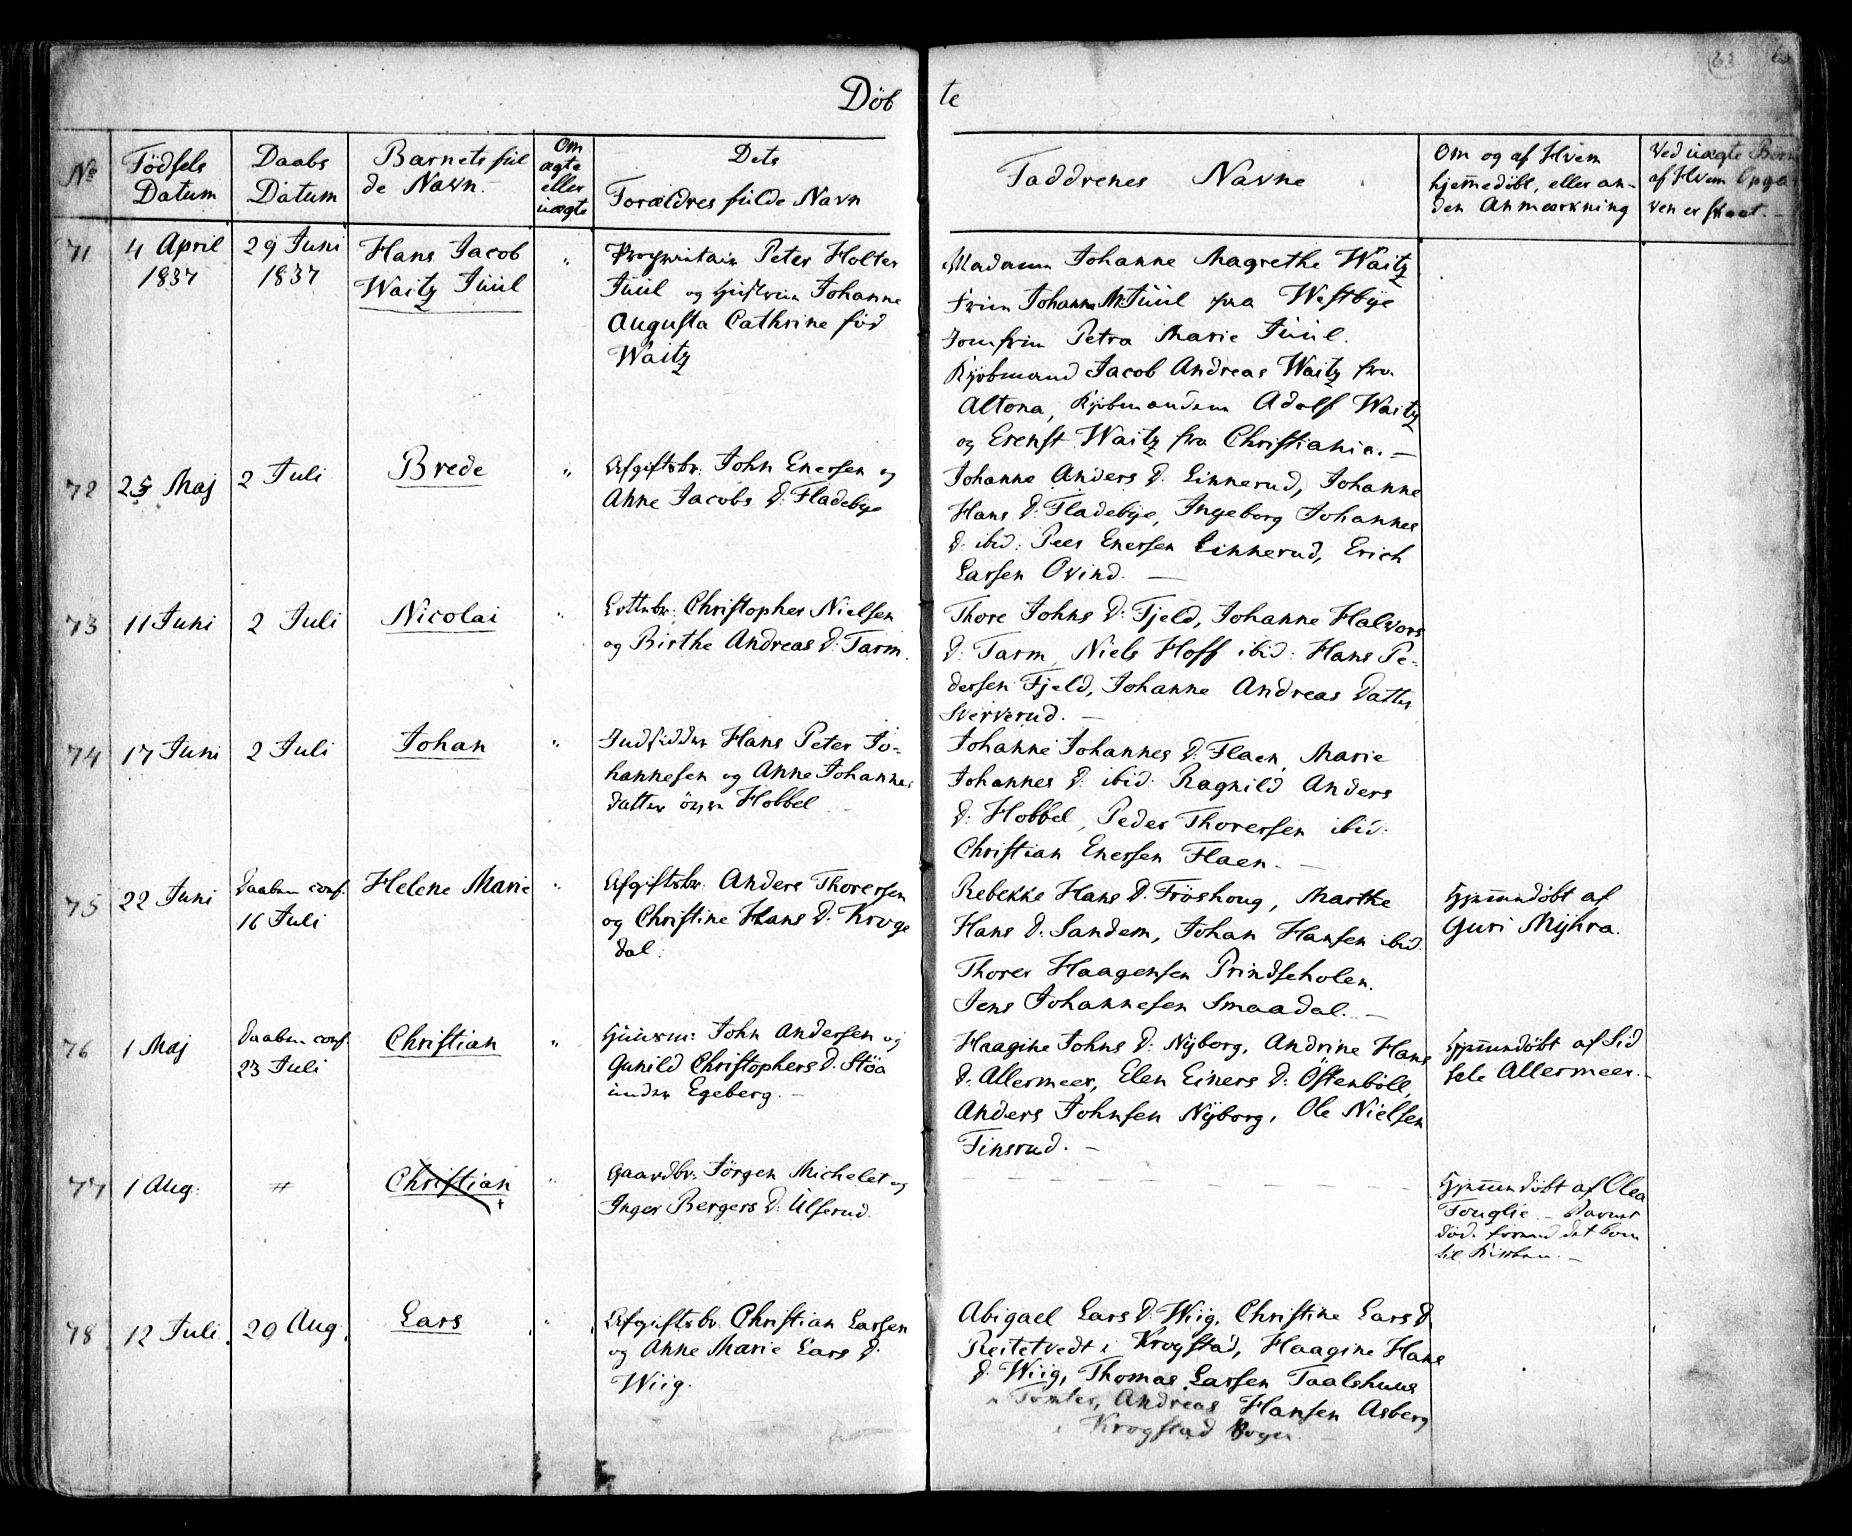 63
Döbte
No
Födsels Datum
Daabs Datum
Barnets fülde Navn.
Om ægte eller üægte
Dets Forældres fülde Navn
Faddrenes Navne
Om og af Hvem hjemmedöbt, eller anden Anmærkning
Ved üægte Børn af Hvem Opgaven er skeet.
71
4 April 1837
29 Juni 1837
Hans Jacob
Waitz Jüül
"
Proprietair Peter Holter
Jüül og Hüstrüe Johanne
Augusta Cathrine föd
Waitz
Madame Johanne Magrethe Waitz
Frue Johanne M. Jüül fra Westbÿe
Jomfrue Petra Marie Jüül.
Kjöbmand Jacob Andreas Waitz fra
Altona, Kjöbmændene Adolf Waitz
og Erenst Waitz fra Christiania. —
72
25 Maj
2 Juli
Brede
"
Afgiftsbr: John Enersen og
Anne Jacobs D: Fladebye
Johanne Anders D. Linnerud, Johanne
Hans D: Fladebÿe, Ingeborg Johannes
D. ibid: Peer Enersen Linnerud, Erich
Larsen Ovind. —
73
11 Juni
2 Juli
Nicolai
"
Christopher Nielsen
og Birthe Andreas D: Tarm.
Thore Johns D: Fjeld, Johanne Halvors
D: Tarm, Niels Hoff ibid: Hans Pe-
dersen Fjeld, Johanne Andreas Datter
Sververud. —
74
17 Juni
2 Juli
Johan
"
Indsidder Hans Peter Jo-
hannesen og Anne Johannes
datter Hobbel
Johanne Johannes D: Flaen, Marie
Johannes D: ibid: Ragnild Anders
D: Hobbel, Peder Thoresen ibid:
Christian Enersen Flaen. —
75
22 Juni
Daaben conf.
16 Juli
Helene Marie
"
Afgiftsbr: Anders Thoresen
og Christine Hans D: Kroge
dal.
Rebekke Hans D. Fröshoug, Marthe
Hans D. Sandem, Johan Hansen ibid
Thorer Haagensen Prindseholen.
Jens Johannesen Smaadal. —
Hjemmedöbt af
Guri Mÿhra.
76
1 Maj
Daaben conf.
23 Juli
Christian
"
Hüüsm: John Andersen og
Gunild Christophers D: Stöa
under Egeberg. —
Haagine Johns D: Nÿborg, Andrine Hans
D: Allermeer, Elen Einers D: Östenböll,
Anders Johnsen Nÿborg, Ole Nielsen
Finsrud. —
Hjemmedöbt af Sid
sele Allermeer. —
77
1 Aug:
"
Christian
+
"
Gaardbr: Jörgen Michelet og
Inger Bergers D: Ulserud.
Hjemmedöbt af Olea
Fouglie. — Barnet
död. förend det kom
til Kirken. —
78
12 Juli.
20 Aug.
Lars
"
Afgiftsbr. Christian Larsen
og Anne Marie Lars D.
Wiig.
Abigael Lars D. Wiig, Christine Lars D
Reitetvedt i Krogstad, Haagine Hans
D. Wiig, Thomas Larsen Taalshuus
i Tomter, Andreas Hansen Asberg
i Krogstad Sogn